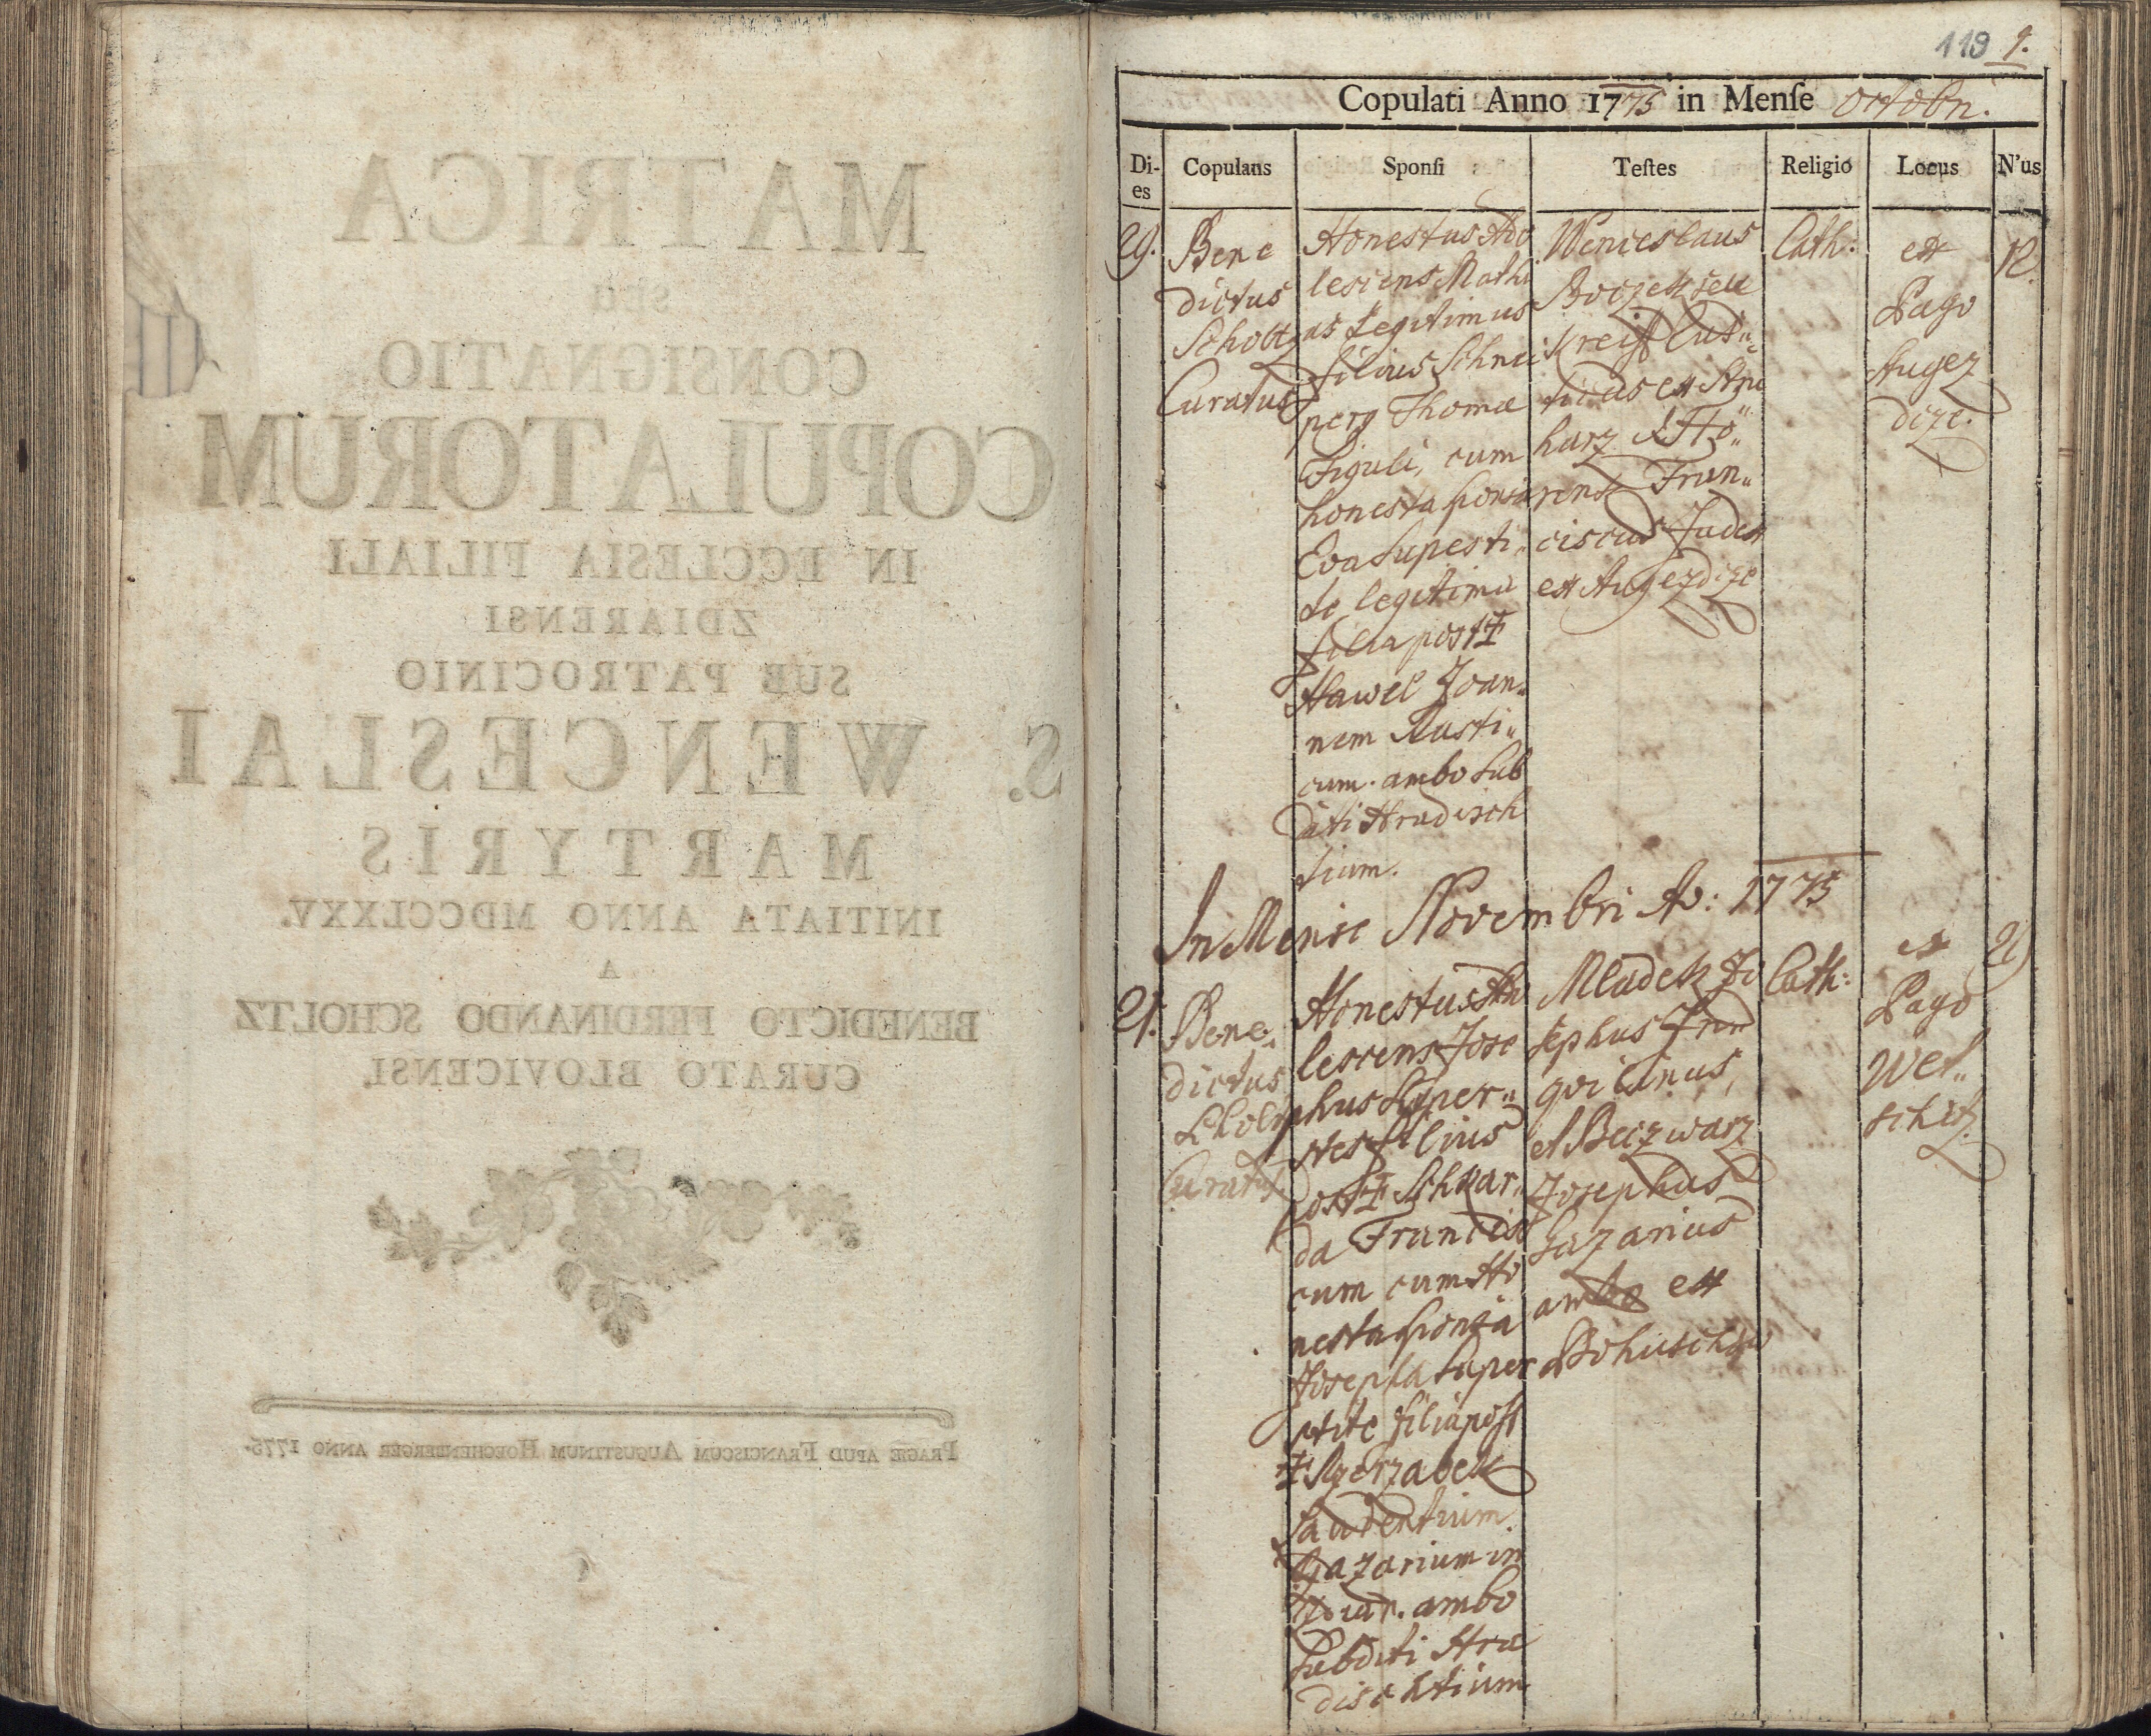 MATRICA
seu
CONSIGNATIO
COPULATORUM
IN ECCLESIA FILIALI
ZDIARENSI
SUB PATROCINIO
S. WENCESLAI
MARTYRIS
INITIATA ANNO MDCCLXXV.
A
BENEDICTO FERDINANDO SCHOLTZ
CURATO BLOVICENSI.
PRAGÆ APUD FRANCISCUM AUGUSTINUM HOECHENBERGER ANNO 1775.
119 1.
Copulati Anno 1775 in Menſe Octobri.
Di-es Copulans Sponſi Teſtes Religio Locus N'us
29.
Bene
dictus
Scholtz
Curatus
Honestus Ado
lescens Mathi
as Legitimus
filius Schnei
perg Thomæ
Figuli, cum
honesta sponsa
Eva Supersti„
te legitima
filia post ‡
Hawel Joan„
nem Rusti„
cum. ambo sub
diti Hradisch
tium.
Wenceslaus
seu
Kreiſſ Rus„
ticus ex
harz
Fran„
ciscus Judex
ex Augezdize
Cath:
ex
Pago
Augez
dize.
12.
In Mense Novembri Ao: 1775
21.
Bene„
dictus
Scholtz
Curatus
Honestus Ado
lescens Jose
phus Super„
stes filius
post ‡
da Francis
cum cum Ho
nesta sponsa
Josepha Super
stite filia post
‡ Rzerzabek
Gazarium in
ambo
Subditi Hra
dischtium
Mladek Jo
sephus Inn
qvilinus,
et Beczwarz
Josephus
Gazarius
ambo ex
Cath:
ex
Pago
Wel„
schitz.
21